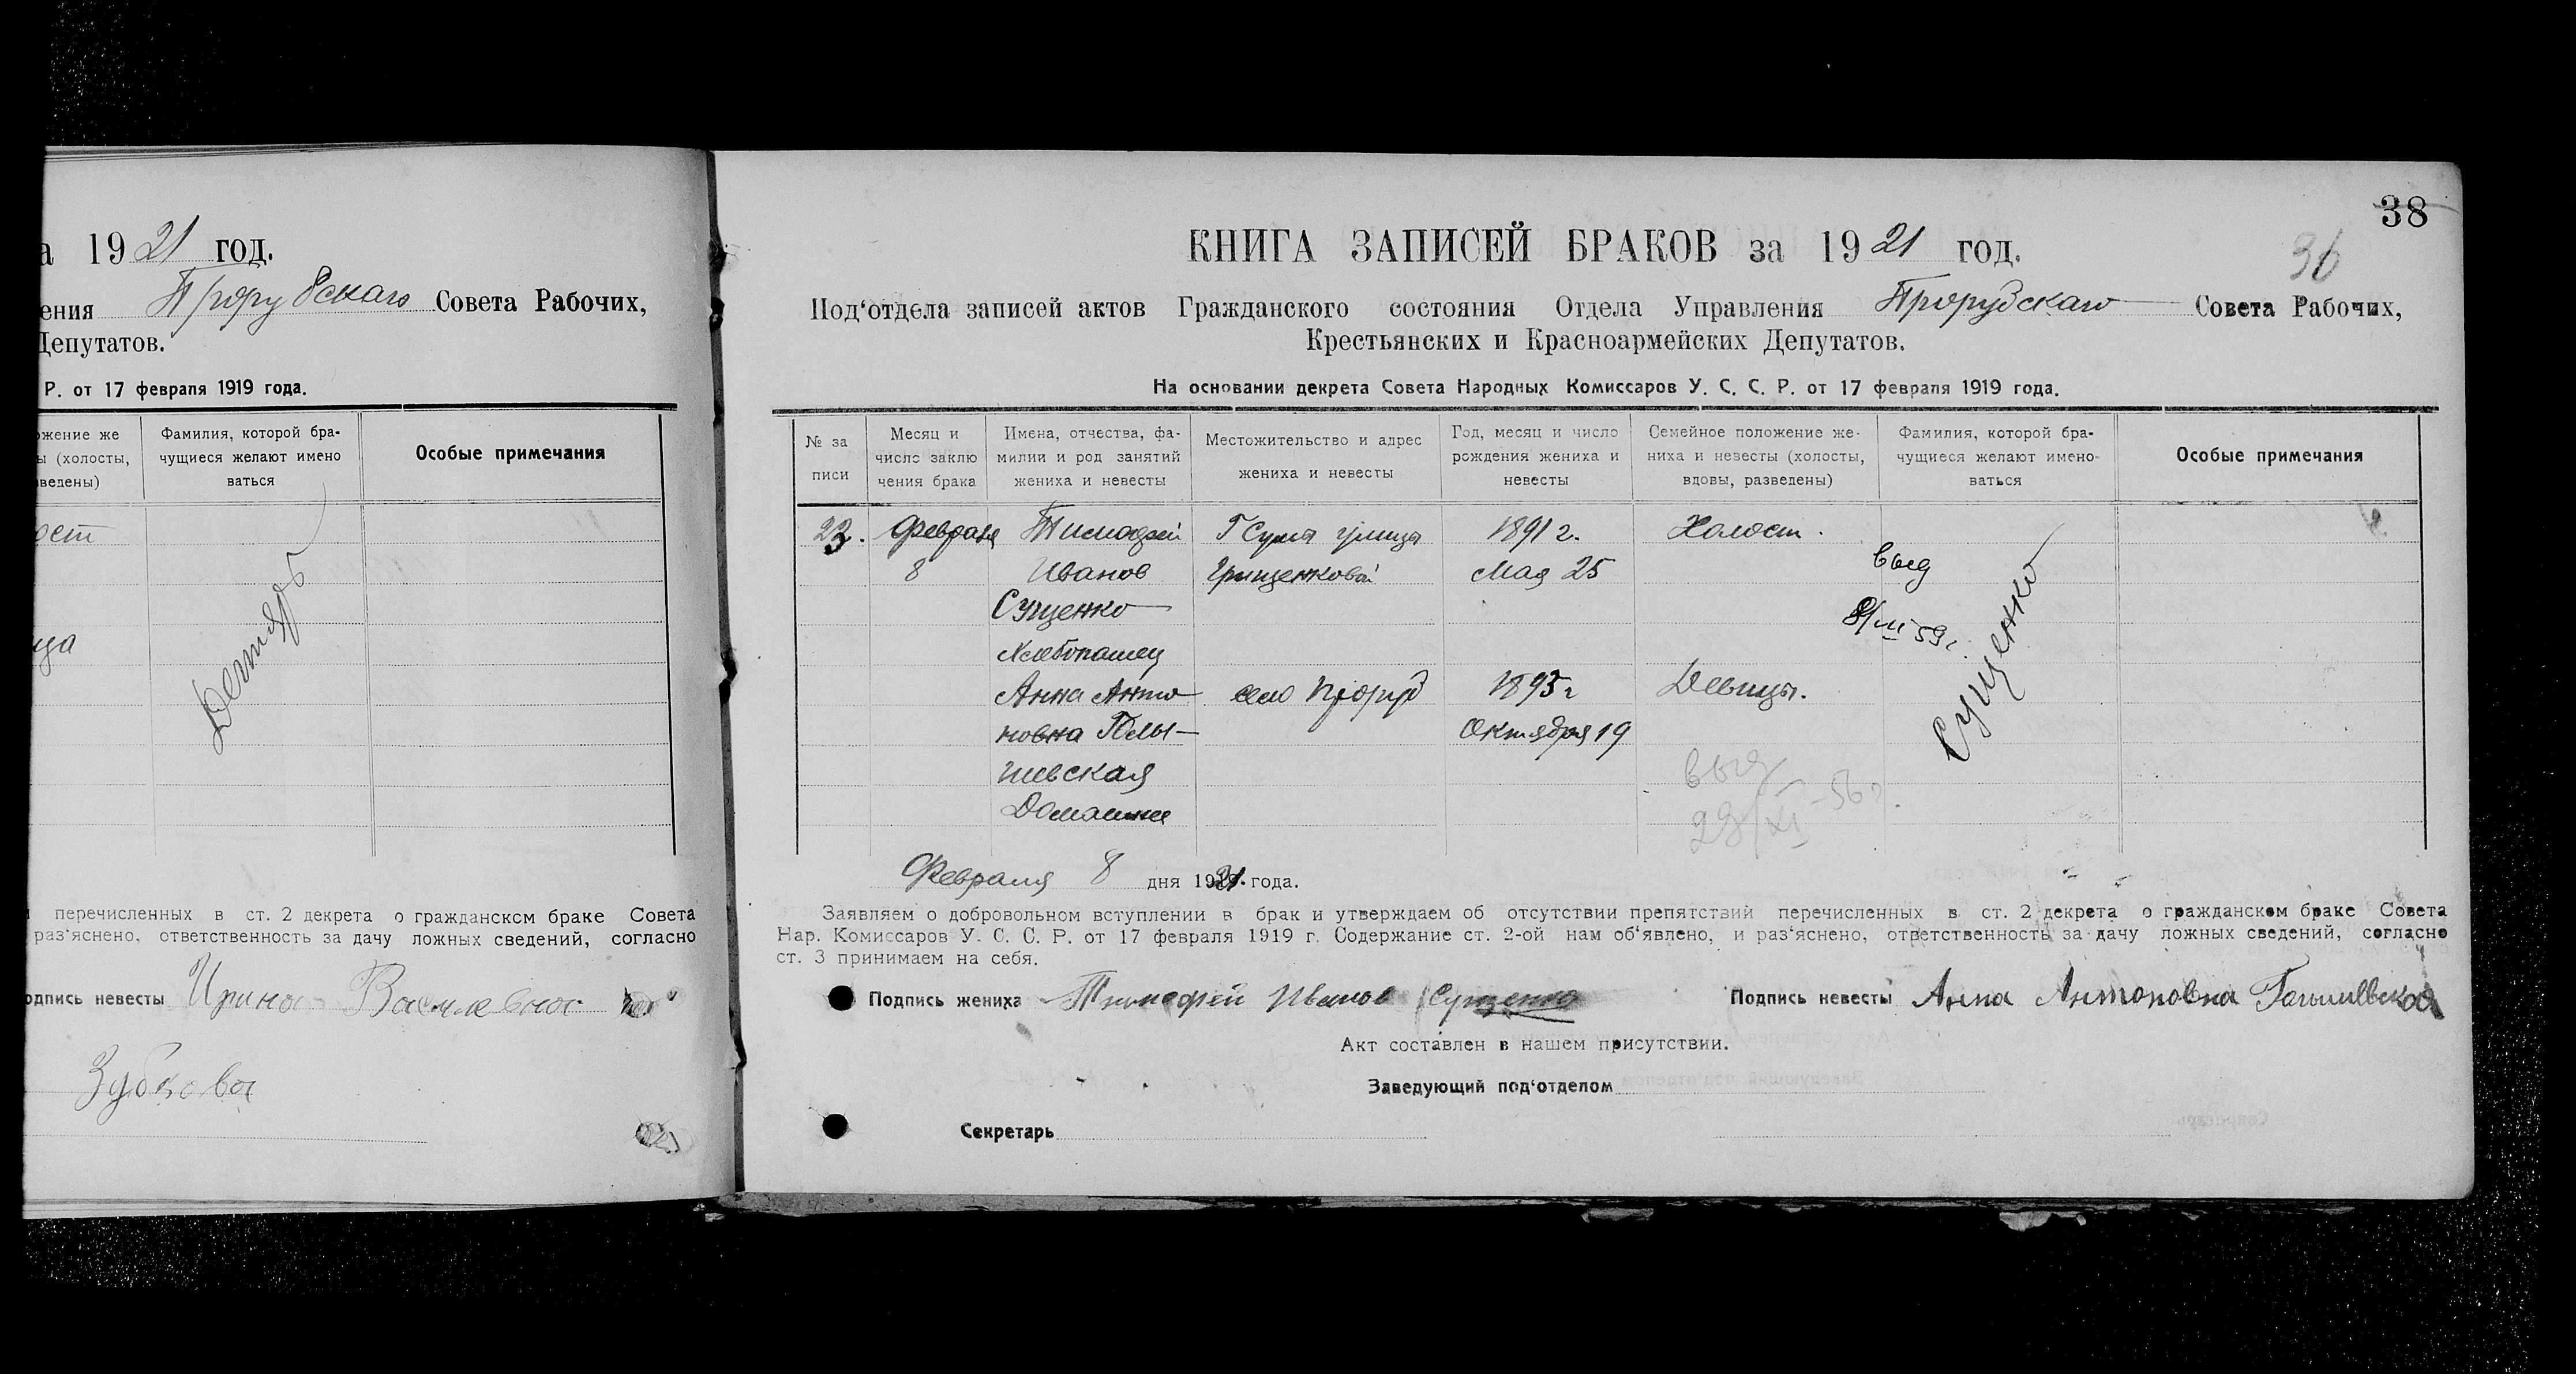 а 1921 год.
ения Прорубскаго Совета Рабочих,
Депутатов.
Р. от 17 февраля 1919 года.
ожение же
ы (холосты,
зведены)
Фамилия, которой бра-
чущиеся желают имено
ваться
Особые примечания
ост
ица
перечисленных в ст. 2 декрета о гражданском браке Совета
раз‘яснено, ответственность за дачу ложных сведений, согласно
одпись невесты Ирина Василевна
Зубкова
38
36
КНИГА ЗАПИСЕЙ БРАКОВ за 1921 год.
Под‘отдела записей актов Гражданского состояния Отдела Управления Прорубскаго Совета Рабочих,
Крестьянских и Красноармейских Депутатов.
На основании декрета Совета Народных Комиссаров У. С. С. Р. от 17 февраля 1919 года.
№ за
писи
Месяц и
число заклю
чения брака
Имена, отчества, фа-
милии и род занятий
жениха и невесты
Местожительство и адрес
жениха и невесты
Год, месяц и число
рождения жениха и
невесты
Семейное положение же-
ниха и невесты (холосты,
вдовы, разведены)
Фамилия, которой бра-
чущиеся желают имено-
ваться
Особые примечания
23.
Февраля
8
Тимофей
Иванов
Сущенко
Хлебопашец
Г Сумы улица
Грищенковой
1891 г.
Мая 25
Холост.
выд
8/III 59 г.
Сущенко
Анна Анто-
новна
шевская
Домашнее
село Проруб
1895 г
Октября 19
Девица.
выд
29/XI-56 г.
Февраля 8 дня 1921 года.
Заявляем о добровольном вступлении в брак и утверждаем об отсутствии препятствий перечисленных в ст. 2 декрета о гражданском браке Совета
Нар. Комиссаров У. С. С. Р. от 17 февраля 1919 г. Содержание ст. 2-ой нам об‘явлено, и раз‘яснено, ответственность за дачу ложных сведений, согласно
ст. 3 принимаем на себя.
Подпись жениха Тимофей Иванов Сущенко
Подпись невесты Анна Антоновна
Акт составлен в нашем присутствии.
Заведующий под‘отделом
Секретарь